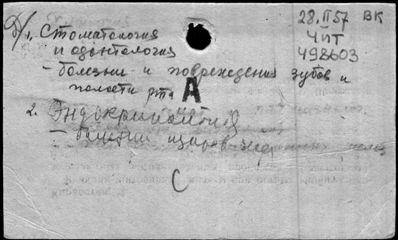 1. Стоматология
и одонтология
- болезни и повреждения зубов и
полости рта
А
2. Эндокринология
- болезни
С
28.II57 ВК
ЧПТ
498603